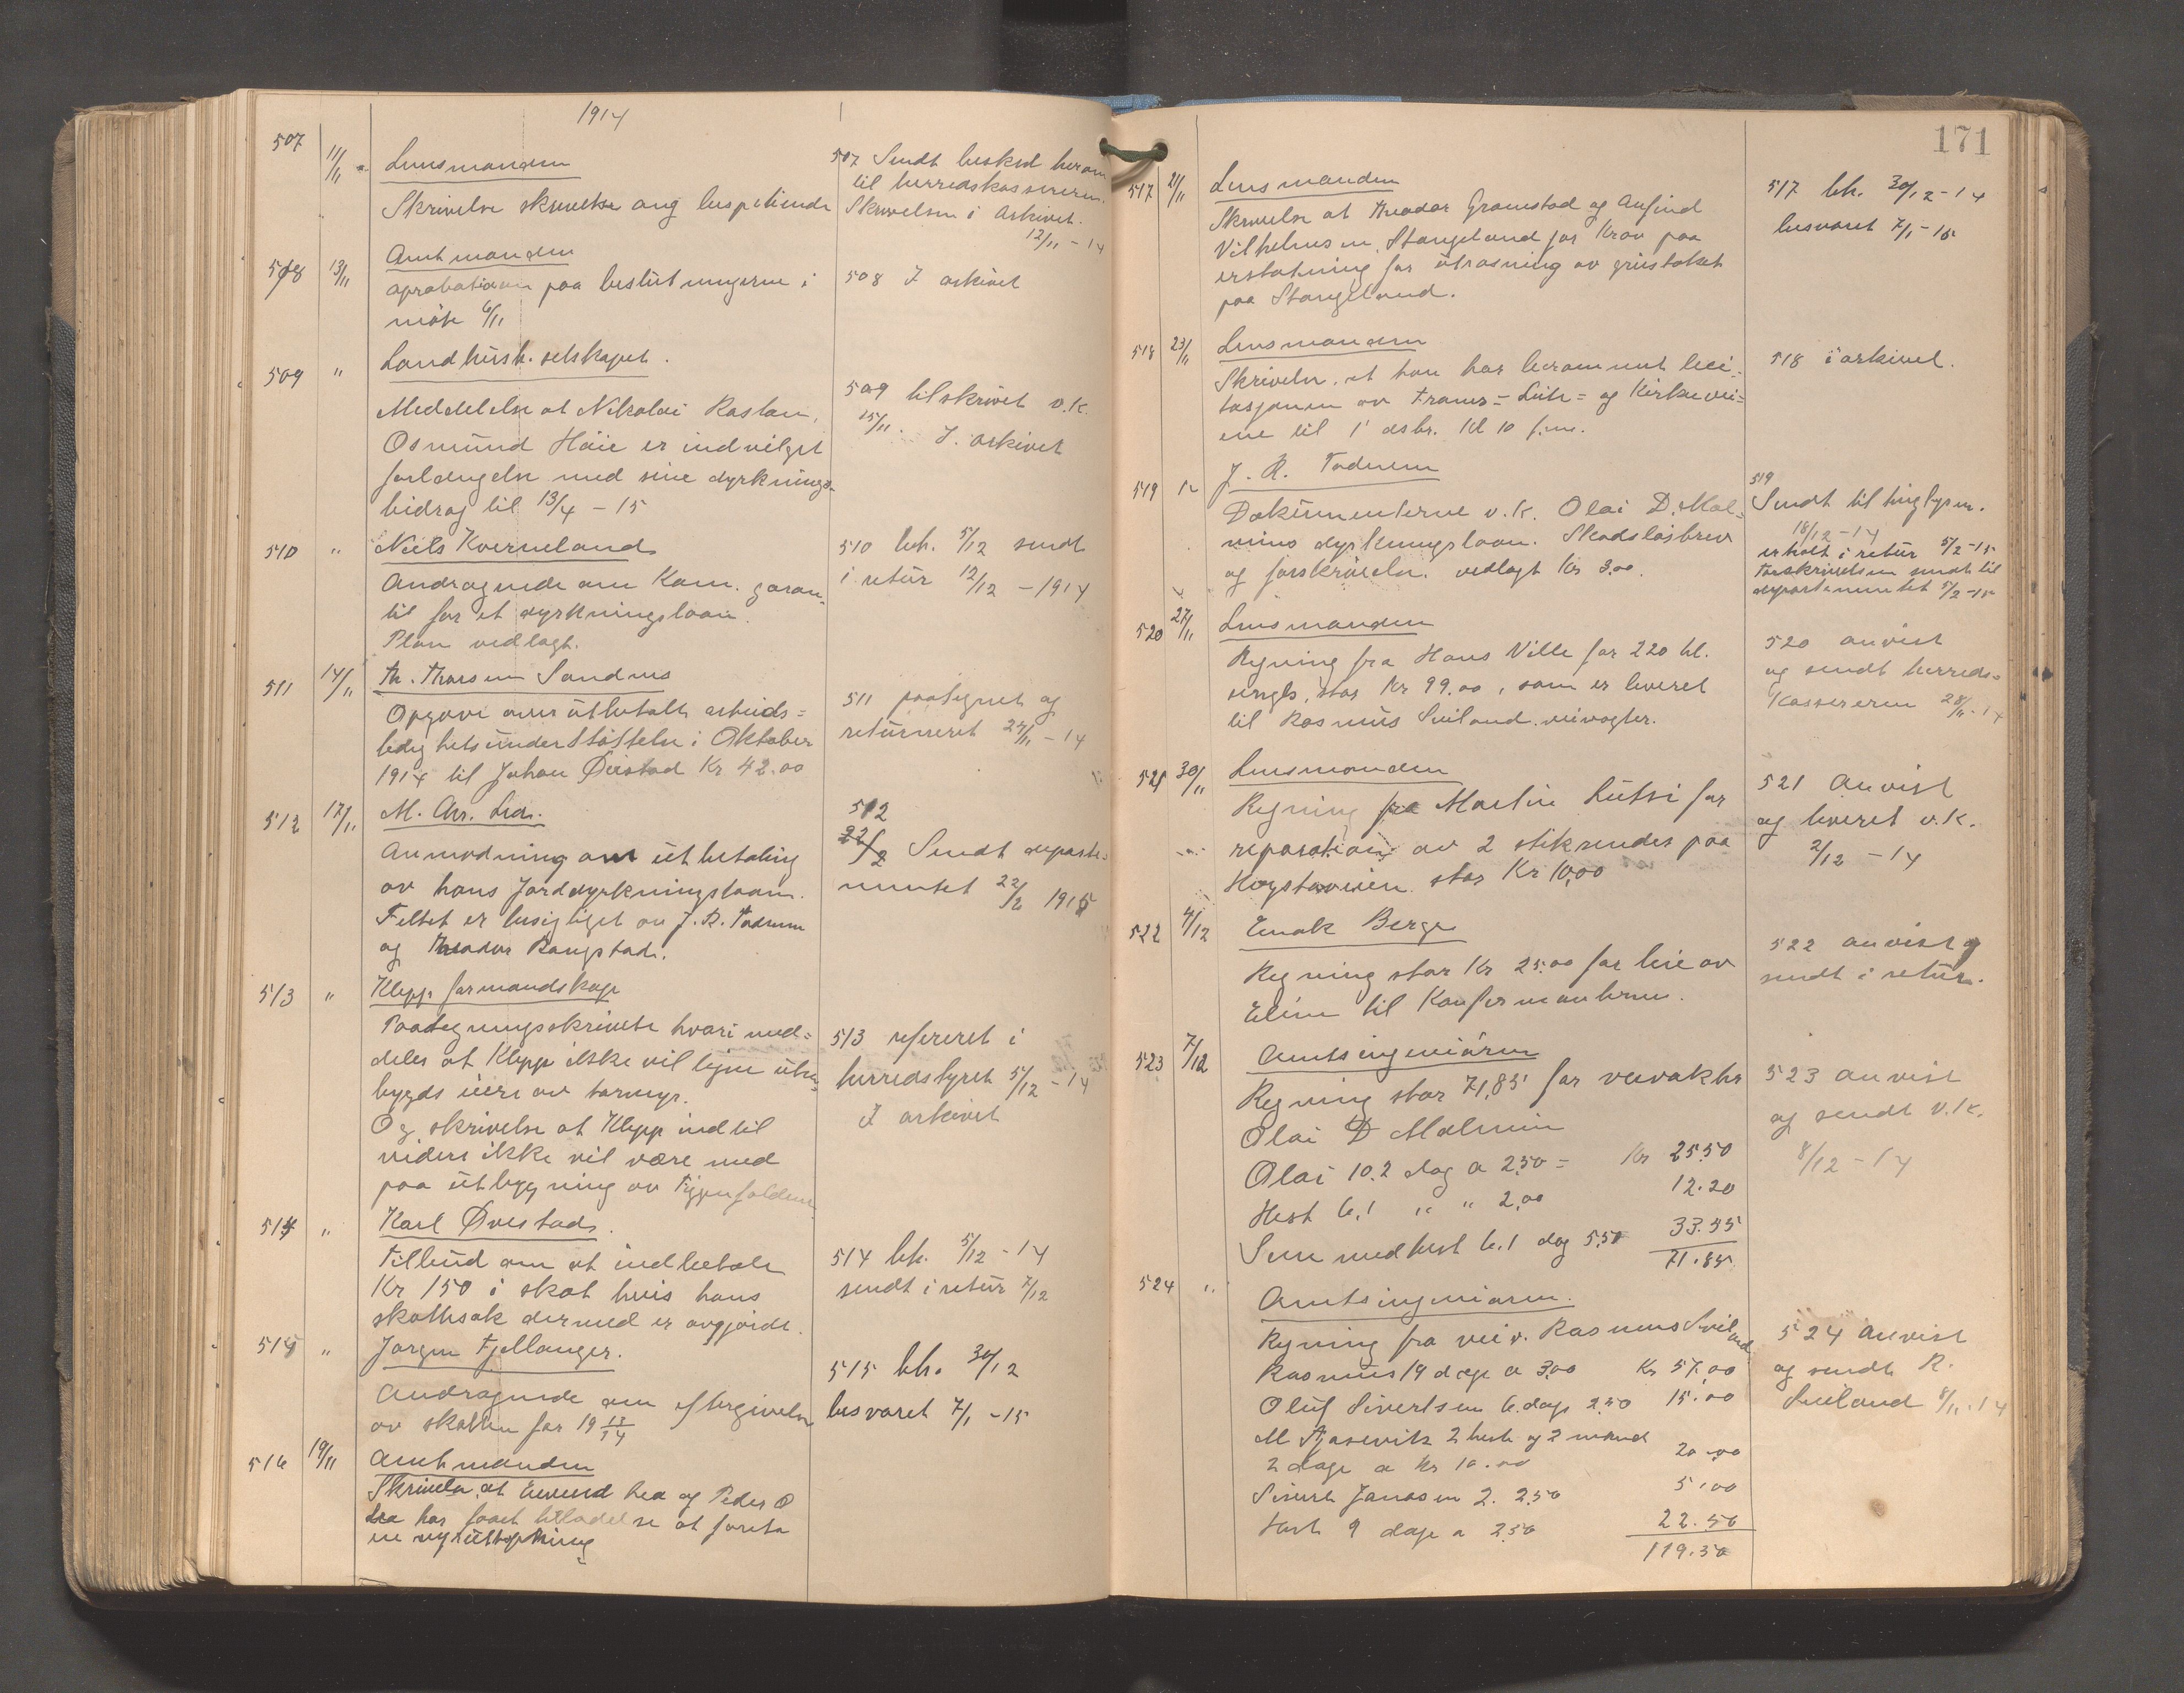 1914
507 11/11 Lensmanden
Skrivelse skrivelse ang luspetiende
507 Sendt besked herom
til herredskassereren.
Skrivelsen i Arkivet.
12/11 - 14
508 13/11 Amtmanden
aprobationen paa beslutningerne i
møte 6/11
508 I arkivet
509 " Landhush. selskapet.
Meddelelse at Nikolai Rostan,
Osmund Høie er indvilget
forlængelse med sine dyrknings-
bidrag til 13/4 - 15
509 tilskrivet v.k.
15/11. I. arkivet
510 " Niels Kverneland
Andragende om Kom. garan-
ti for et dyrkningslaan.
Plan vedlagt.
510 beh. 5/12 sendt
i retur 12/12 - 1914
511 14/11 Th. Thorsen Sandnes
Opgave over utbetalt arbeids=
ledighetsunderstøttelse i Oktober
1914 til Johan Øvestad Kr 42.00
511 paategnet og
returneret 24/11 - 14
512 17/11 M. Chr. Lea.
Anmodning om utbetaling
av hans Jorddyrkningslaan.
Feltet er besigtiget av J. R. Todnem
og Theodor Rangstad.
512
22/2 Sendt departe-
mentet 22/2 1915
513 " Klepp formandskap
Paategningsskrivelse hvori med=
deles at Klepp ikke vil leje uten-
bygds eiere av tormyr.
Og skrivelse at Klepp indtil
videre ikke vil være med
paa utbygning av Figgenfaldene
513 refereret i
herredstyret 5/12 - 14
I arkivet
514 " Karl Øvestad.
Tilbud om at indbetale
Kr 150 i skat hvis hans
skattesak dermed er avgjorde.
514 beh. 5/12 - 14
sendt i retur 7/12
515 " Jørgen Fjellanger.
Andragende om eftergivelse
av skatten for 19 13/14
515 beh. 30/12
besvaret 7/1 - 15
516 19/11 Amtmanden
Skrivelse, at Eivend Lea og Peder O
Lea har faaet tilladelse at foreta
en ny utstykning
171
517 21/11 Lensmanden
Skrivelse at Theodor Gramstad og Anfind
Vilhelmsen, Stangeland for krav paa
erstatning for utrasning av grustaket
paa Stangeland.
517 beh. 30/12 - 14
besvaret 7/1 - 15
518 23/11 Lensmanden
Skrivelse, at han har berammet lici-
tasjonen av Traner= Lute= og Kirkevei=
ene til 1' dsbr. kl 10 f.m.
518 i arkivet.
519 J. R. Todnem
Dokumenterne v.k. Olai D. Mal=
mins dyrkningslaan. Skadesløsbrev
og forskrivelse. vedlagt kr 3.00.
519
Sendt til tinglysn.
18/12 - 14
erholt i retur 5/2 - 15
Forskrivelsen sendt til
departementet 5/2 - 15
520 27/11 Lensmanden
Regning fra Hans Ville for 220 hl.
singls, stor kr 99.00, som er leveret
til Rasmus Sviland. veivogter.
520 anvist
og sendt herreds=
kassereren 28/11 - 14
521 30/11 Lensmanden
Regning fra Martin Lutsi for
reparation av 2 stikrender paa
Høgstaveien. stor Kr 10,00
521 anvist
og leveret v.k.
2/12 - 14
522 4/12 Enok Berge
Regning stor Kr 25.00 for leie av
Elim til Konfermanterne.
522 anvist og
sendt i retur.
523 7/12 Amtsingeniøren
Regning stor 71,85 for veivakter
Olai D Malmin
Olai 10.2 dag a 2,50 = Kr 25.50
Hest 6.1 " " 2.00 12.20
Sum med hest 6.1 dag 5,50 33.55
71.85
523 anvist
og sendt v.k.
8/12 - 14
524 " Amtsingeniøren.
Regning fra veiv. Rasmus Sviland
Rasmus 19 dage a 3.00 Kr 57.00
Oluf Sivertsen 6. dage 2.50 15.00
M Aasevik 2 heste og 2 mand
2 dage a Kr 10.00 20.00
Sivert Janasen 2. 2.50 5.00
Hest 9 dage a 2.50 22.50
119.50
524 anvist
og sendt R.
Sviland 8/11. 14